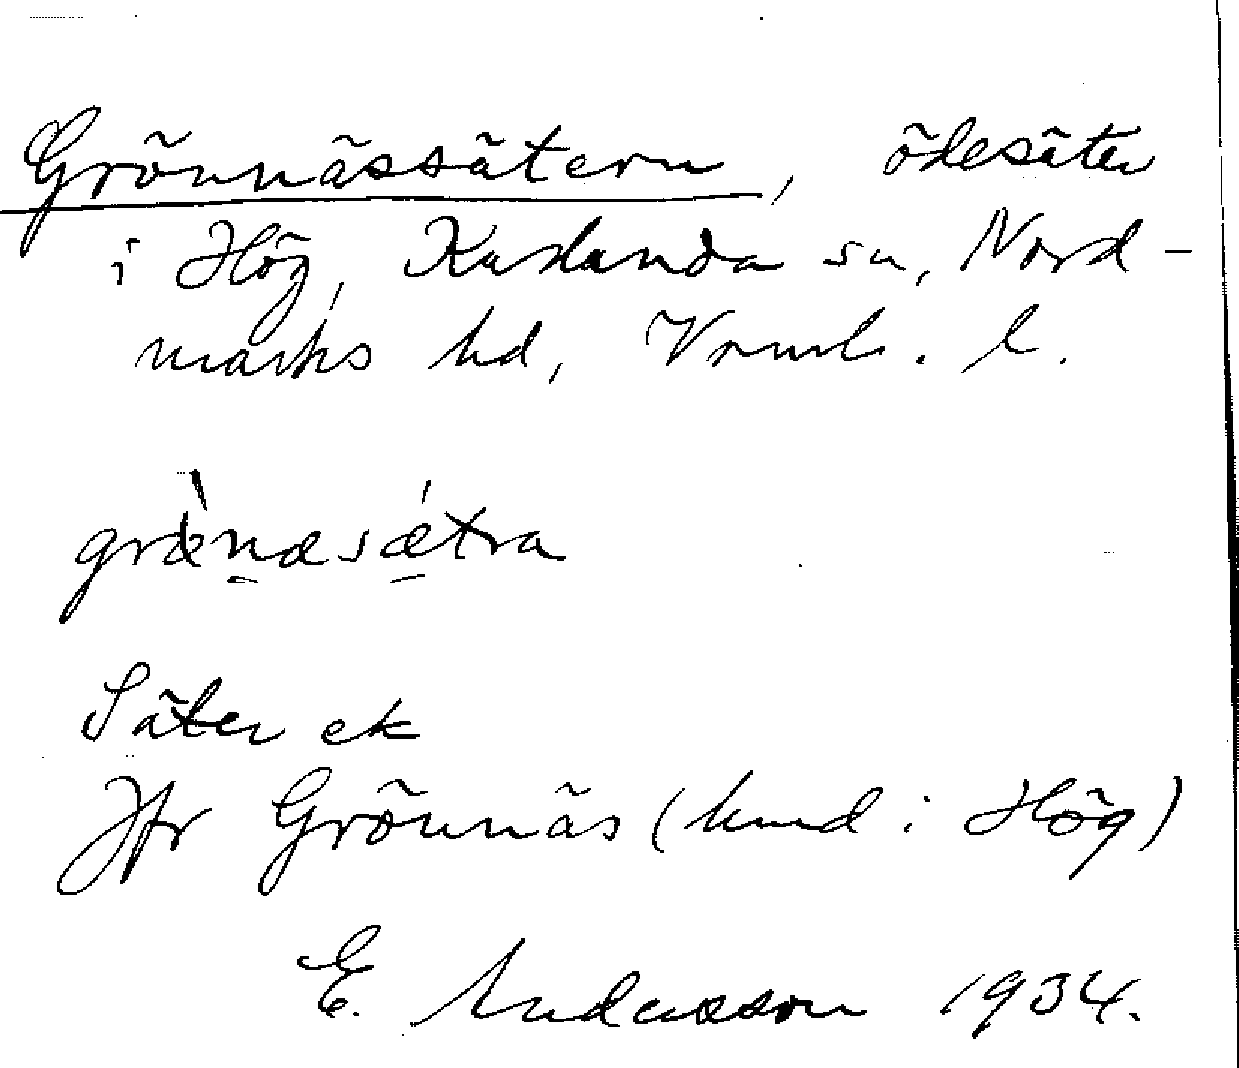 Grönnässätern, ödesäter
i Hög, Karlanda sn, Nord-
marks hd, Vrml. l.
grǽnæsǽtra
Säter ek
Jfr Grönnäs (hmd i Hög)
E. Andersson 1934.